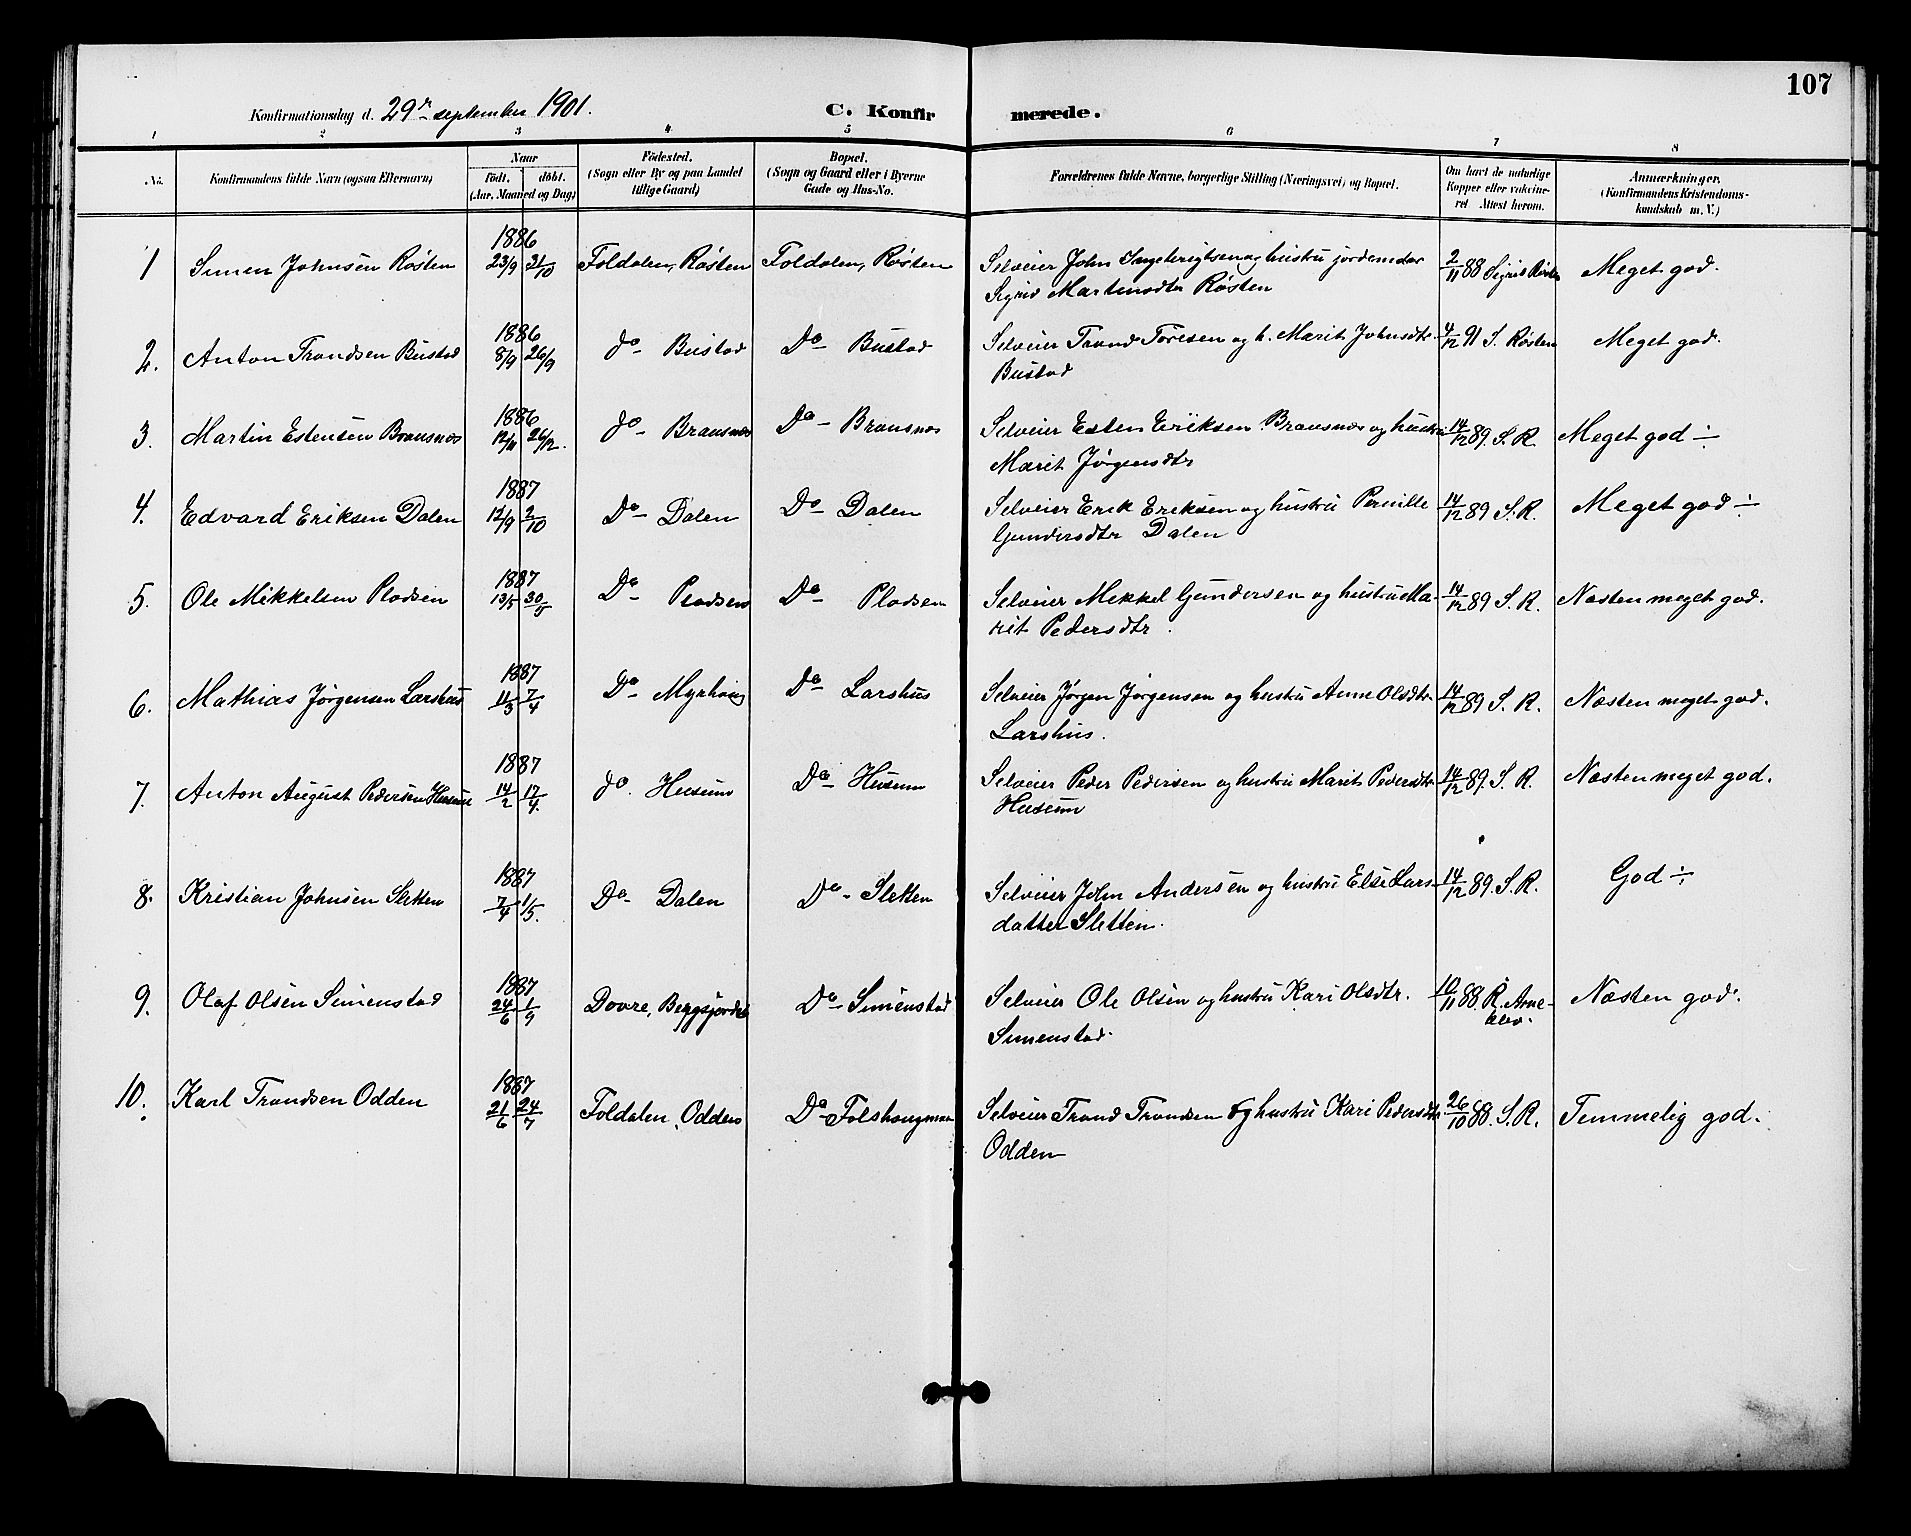 107
Konfirmationsdag d. 29de september 1901. C. Konfirmerede.
1 2 3 4 5 6 7 8
No. Konfirmandens fulde Navn (ogsaa Efternavn) Naar født. døbt. (Aar, Maaned og Dag) Födested. (Sogn eller By og paa Landet tillige Gaard) Bopæl. (Sogn og Gaard eller i Byerne Gade og Hus-No. Forældrenes fulde Navne, borgerlige Stilling (Næringsvei) og Bopæl. Om havt de naturlige Kopper eller vaksineret Attest herom. Anmærkninger. (Konfirmandens Kristendomskundskab m. V.)
1 Simen Johnsen Røsten 1886 23/9 31/10 Foldalen, Røsten Foldalen, Røsten Selveier John Ingebrigtsen og hustru jordemoder 2/11 88 Sigrid Røsten Meget god.
Sigrid Martinsdtr Røsten
2. Anton Trondsen Bustad 1886 8/9 26/9 do Bustad Do Bustad Selveier Trond Toresen og h. Marit Johnsdtr 4/12 91 S. Røsten Meget god.
Bustad
3. Martin Estensen Brænsnos 1886 12/11 26/12. do Brænsnos Do Brænsnos Selveier Esten Eriksen Brænsnos og hustru 14/12 89. S. R. Meget god ÷
Marit Jørgensdtr
4. Edvard Eriksen Dalen 1887 12/9 2/10 Do Dalen Do Dalen Selveier Erik Eriksen og hustru Pernille 14/12 89 S. R. Meget god ÷
Gundersdtr Dalen
5. Ole Mikkelsen Pladsen 1887 13/5 30/5 Do Pladsen Do Pladsen Selveier Mekkel Gundersen og hustru Ma- 14/12 89 S. R. Næsten meget god.
rit Pedersdtr.
6. Mathias Jørgensen Larshus 1887 11/3 7/4 Do Myrhaug Do Larshus Selveier Jørgen Jørgensen og hustru Anne Olsdtr. 14/12 89 S. R. Næsten meget god.
Larshus.
7. Anton August Pedersen Husum 1887 14/2 17/4. do. Husum Do Husum Selveier Peder Pedersen og hustru Marit Pedersdtr. 14/12 89. S. R. Næsten meget god.
Husum
8. Kristian Johnsen Sletten 1887 7/4 1/5. Do Dalen Do Sletten Selveier John Andersen og hustru Else Lars- 14/12 89. S. R. God ÷
datter Sletten.
9. Olaf Olsen Simenstad 1887 24/6 1/9 Dovre, Do Simenstad Selveier Ole Olsen og hustru Kari Olsdtr. 10/11 88. R. Arne- Næsten god.
Simenstad. klev.
10. Karl Trondsen Odden 1887 21/6 24/7 Foldalen, Odden Do Folshaugmoen Selveier Trond Trondsen og hustru Kari Pedersdtr. 26/10 88. S. R. Temmelig god.
Odden